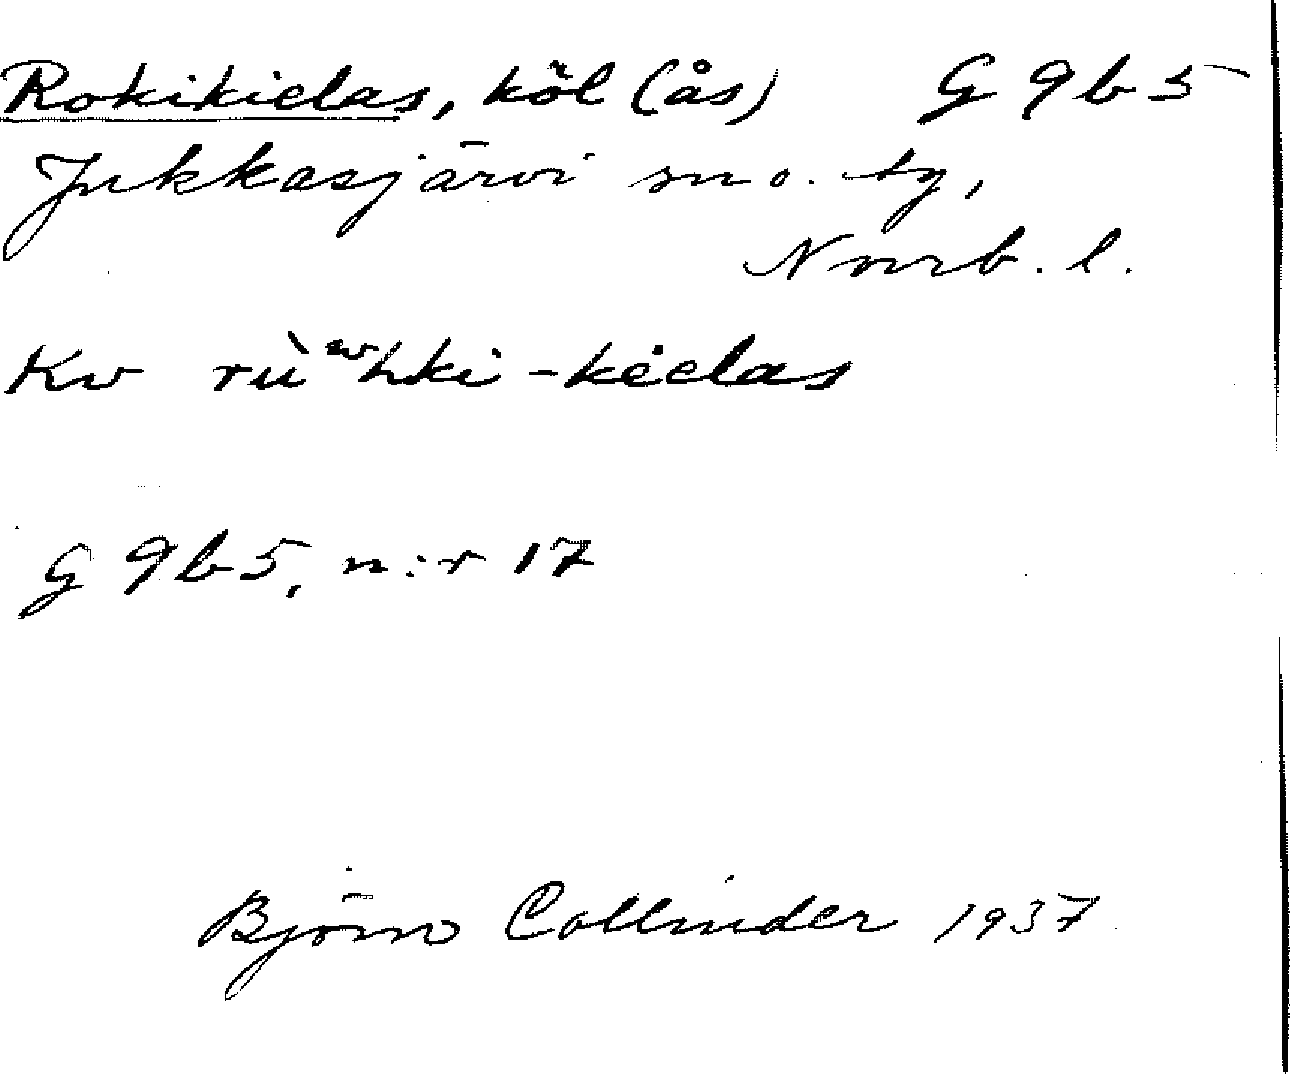 Rokikielas, köl (ås) G 9 b 5
Jukkasjärvi sn o. tg,
Norrb. l.
Kv -kielas
G 9 b 5, n:r 17
Björn Collinder 1937